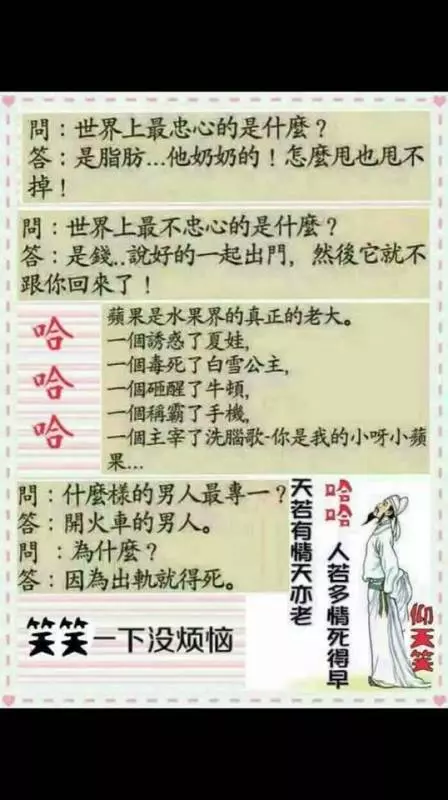 問：世界上最忠心的是什麼？
答：是脂肪...他奶奶的！怎麼甩也甩不
掉！
問：世界上最不忠心的是什麼？
答：是錢..說好的一起出門，然後它就不
跟你回來了！
哈
哈
哈
蘋果是水果界的真正的老大。
一個誘惑了夏娃,
一個毒死了白雪公主,
一個砸醒了牛頓,
一個稱霸了手機,
一個主宰了洗腦歌-你是我的小呀小蘋
果...
問：什麼樣的男人最專一？
答：開火車的男人。
問 ：為什麼？
答：因為出軌就得死。
哈哈
天若有情天亦老
人若多情死得早
仰天笑
笑笑一下没烦恼